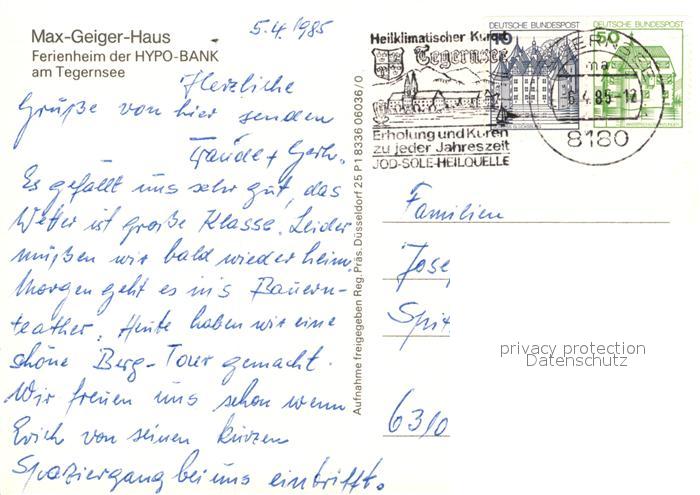 Max-Geiger-Haus
Ferienheim der HYPO-BANK
am Tegernsee
5.4.1985
Herzliche
Grüße von hier senden
Traude + Gerh.
Es gefällt uns sehr gut, das
Wetter ist große Klasse. Leider
müßen wir bald wieder heim.
Morgen geht es ins Bauern-
teather. Heute haben wir eine
schöne Berg-Tour gemacht.
Wir freuen uns schon wenn
Erich von seinen kurzen
Spaziergang bei uns eintrifft.
Aufnahme freigegeben Reg. Präs. Düsseldorf 25 P1 8336 06036/0
Heilklimatischer Kurort
Tegernsee
Erholung und Kuren
zu jeder Jahreszeit
JOD-SOLE-HEILQUELLE
DEUTSCHE BUNDESPOST
10
DEUTSCHE BUNDESPOST
50
.4.85-12
8180
Familien
Jose
Spit
6310
privacy protection
Datenschutz